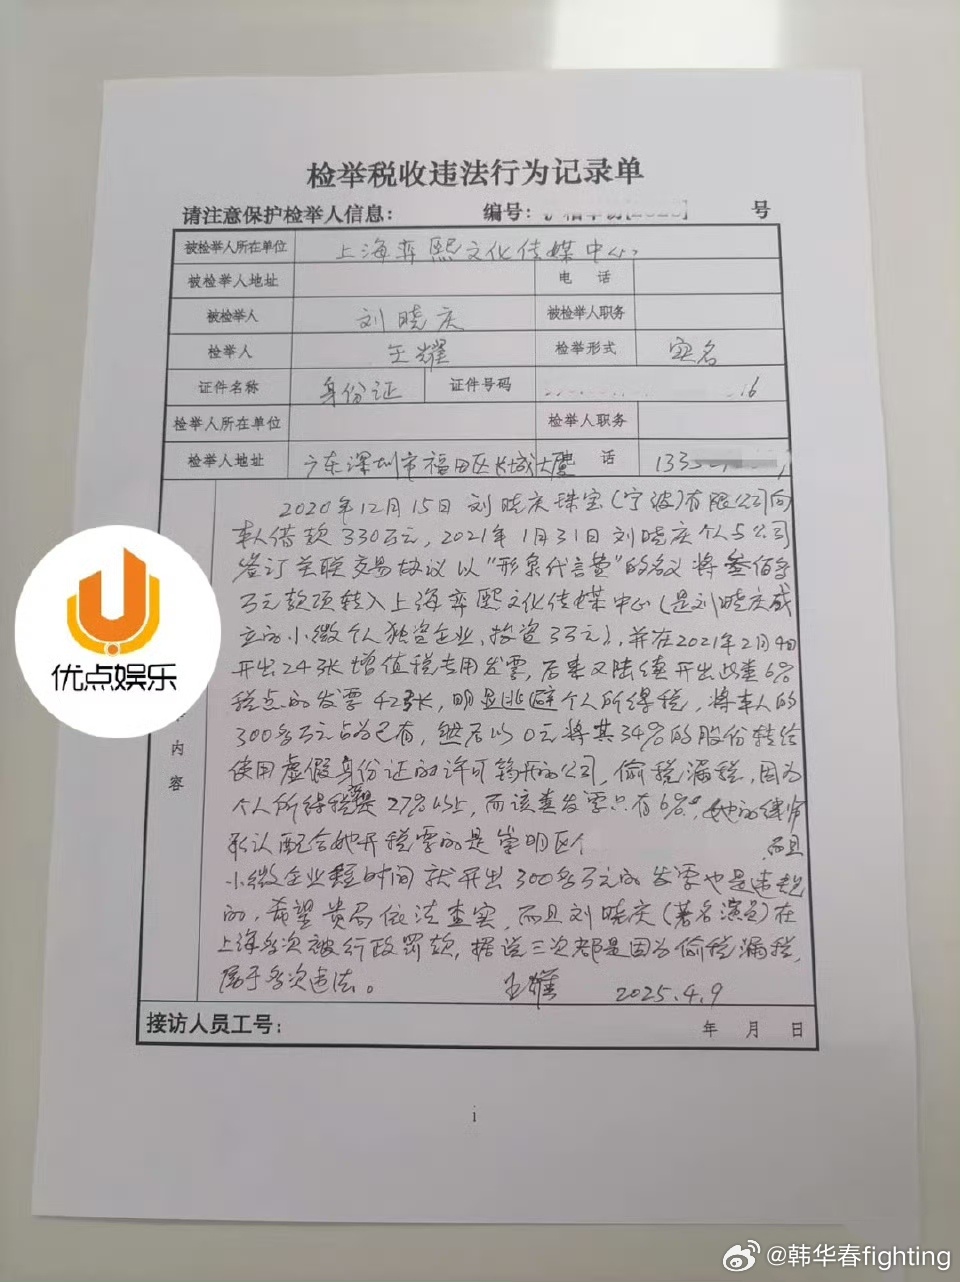 检举税收违法行为记录单
请注意保护检举人信息： 编号： 号
被检举人所在单位 上海弈熙文化传媒中心
被检举人地址 电 话
被检举人 刘晓庆 被检举人职务
检举人 王耀 检举形式 实名
证件名称 身份证 证件号码 16
检举人所在单位 检举人职务
检举人地址 广东深圳市福田区长城大厦 话 133
2020年12月15日刘晓庆珠宝(宁波)有限公司向
本人借款330万元，2021年1月31日刘晓庆个人与公司
签订关联交易协议以“形象代言费”的名义将叁佰多
万元款项转入上海弈熙文化传媒中心(是刘晓庆成
立的小微个人独资企业，投资3万元)，并在2021年2月4日
开出24张增值税专用发票，后来又陆续开出此类6%
税点的发票42张，明显逃避个人所得税，将本人的
300多万元占为己有，然后以0元将其34%的股份转给
使用虚假身份证的许可锡开的公司，偷税漏税，因为
个人所得税 27%以上，而该类发票只有6%，她的律师
承认配合她开税票的是崇明区个 而且
小微企业短时间就开出300多万元的发票也是违规
的，希望贵局依法查实，而且刘晓庆(著名演员)在
上海多次被行政罚款，据说三次都是因为偷税漏税，
属于多次违法。 王耀 2025.4.9
内
容
接访人员工号： 年 月 日
i
优点娱乐
@韩华春fighting